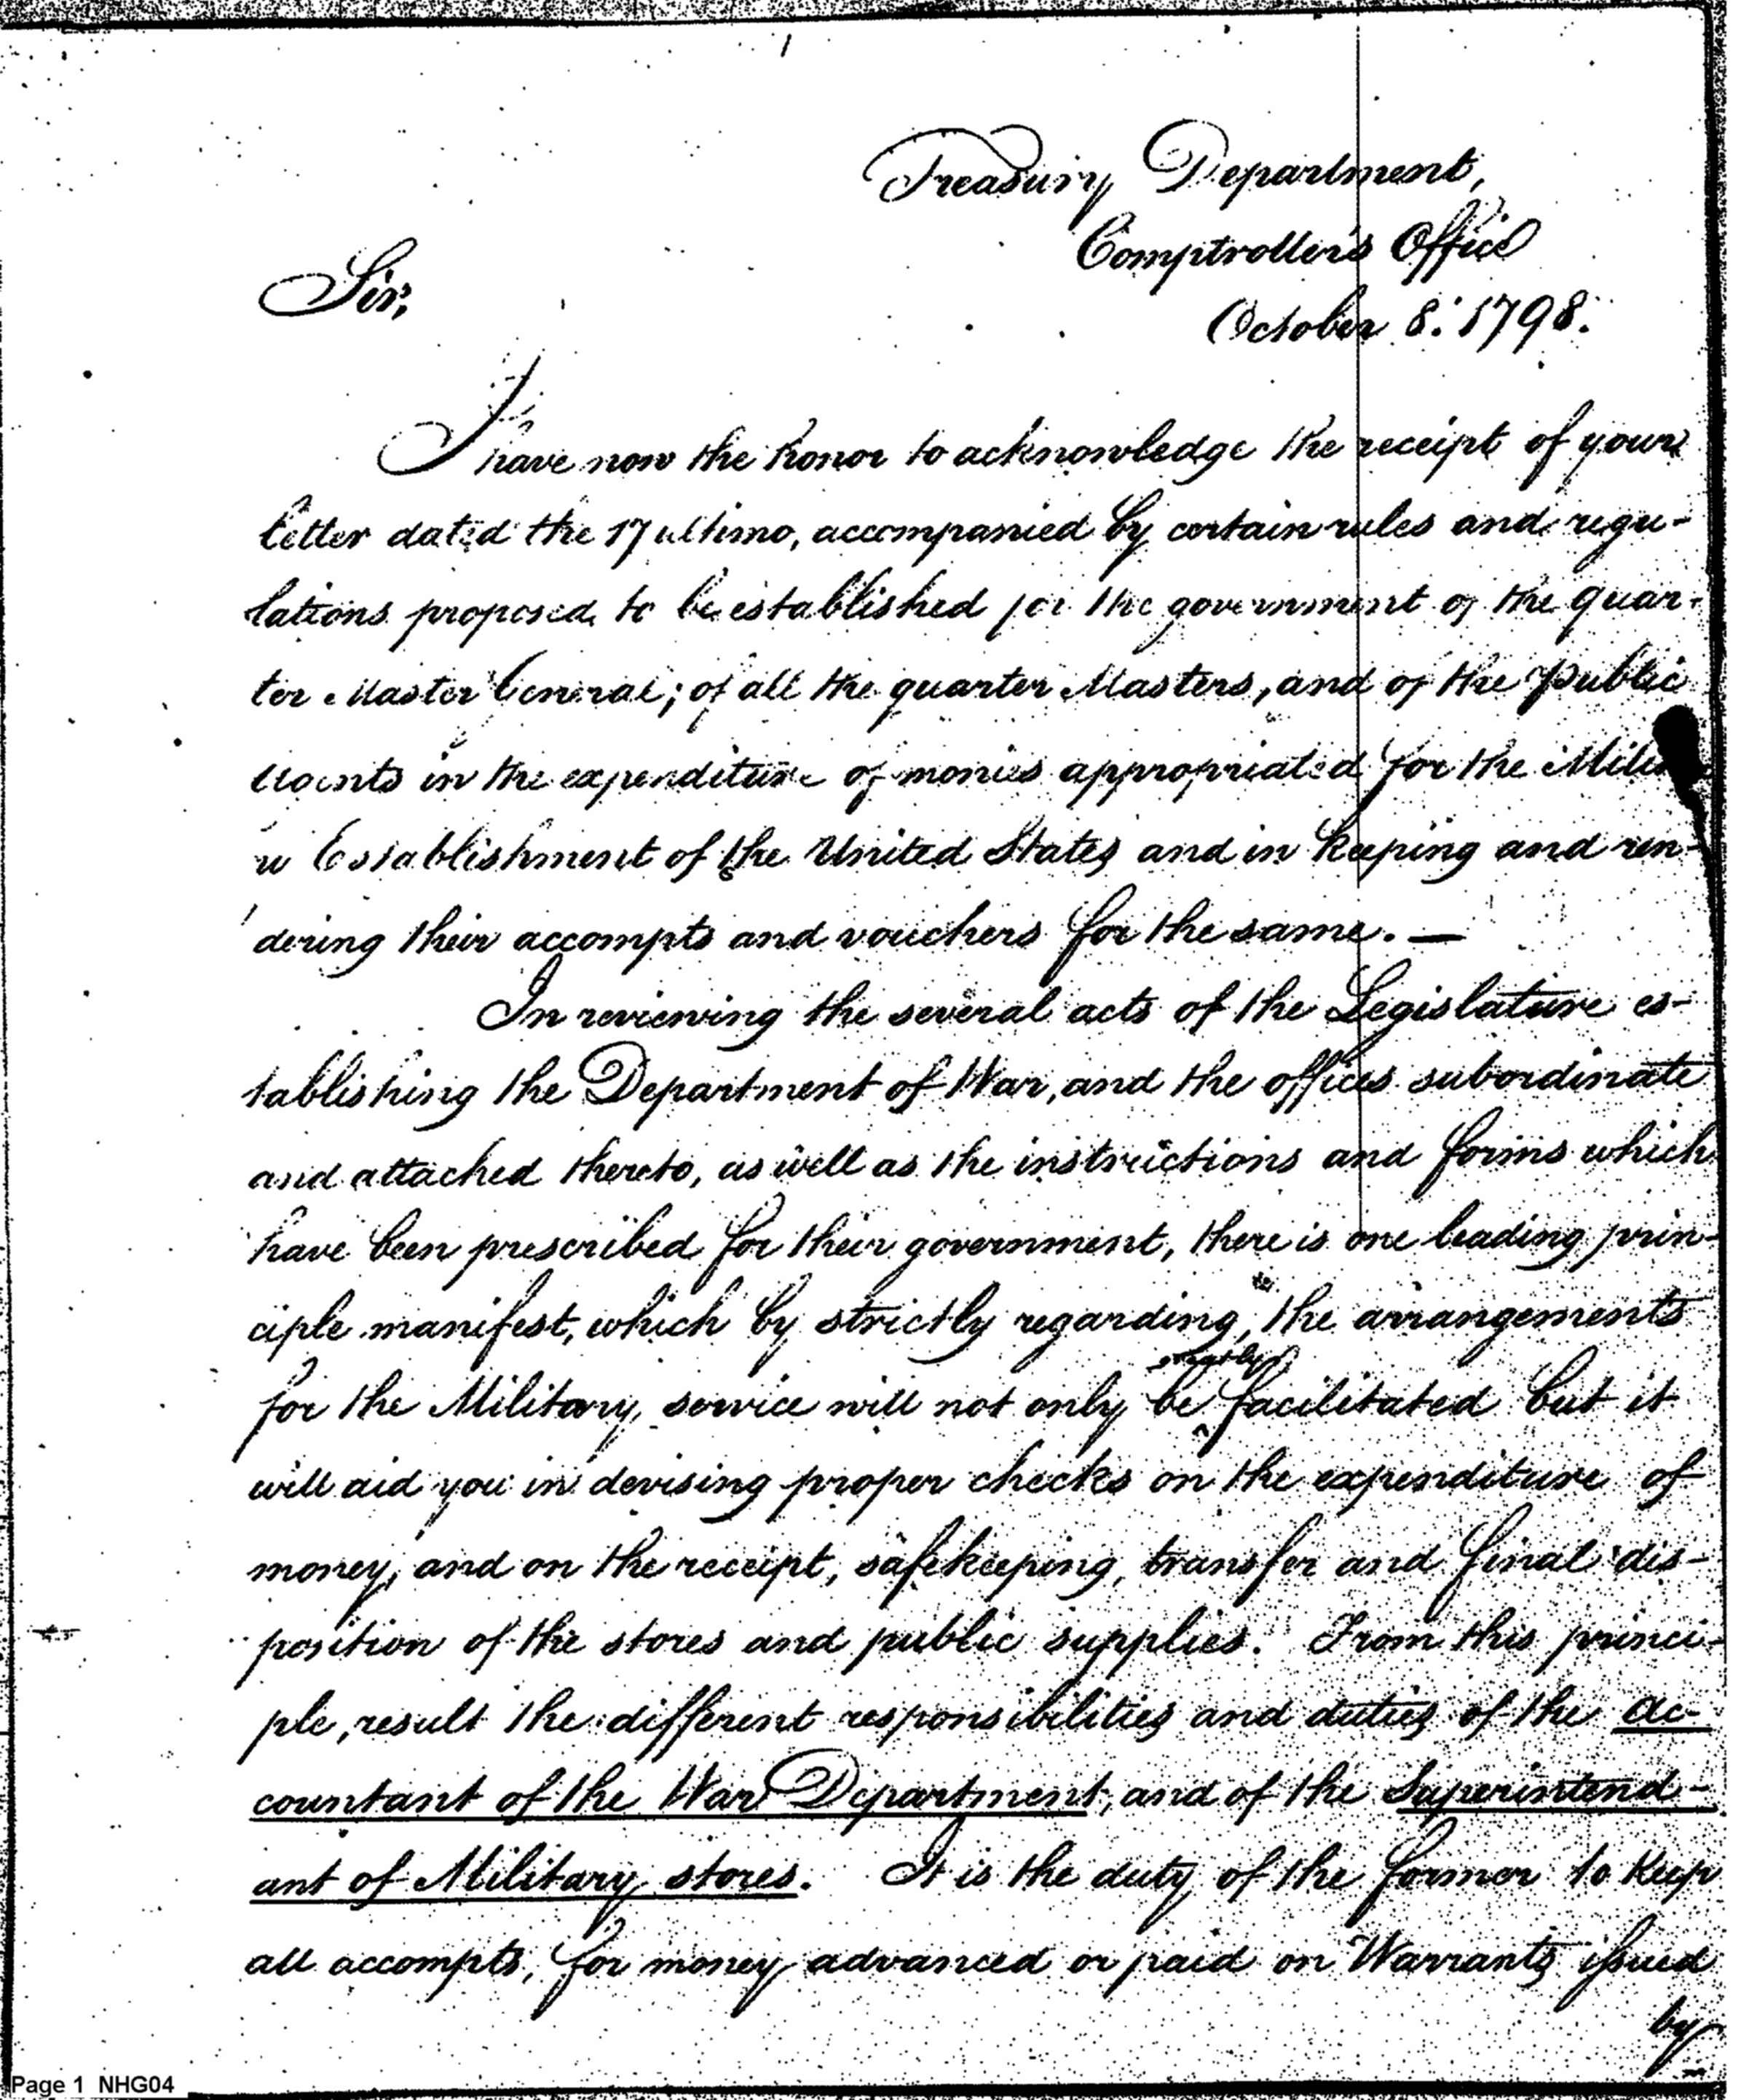 Treasury Department,
Comptroller's Office
Sir,
October 8. 1798.
I have now the honor to acknowledge the receipt of your
letter dated the 17 ultimo, accompanied by certain rules and regu-
lations proposed to be established for the government of the quar-
ter Master General; of all the quarter Masters, and of the Public
in the expenditure of monies appropriated for the
Establishment of the United States and in keeping and ren-
dering their accompts and vouchers for the same. —
In reviewing the several acts of the Legislature es-
tablishing the Department of War, and the offices subordinate
and attached thereto, as well as the instructions and forms which
have been prescribed for their government, there is one leading prin-
ciple manifest, which by strictly regarding, the arrangements
greatly
for the Military service will not only be facilitated but it
will aid you in devising proper checks on the expenditure of
money, and on the receipt, safekeeping, transfer and final dis-
position of the stores and public supplies. From this princi-
ple, result the different responsibilities and duties of the ac-
countant of the War Department, and of the Superintend-
ant of Military stores. It is the duty of the former to keep
all accompts, for money advanced or paid on Warrants issued
by
Page 1 NHG04